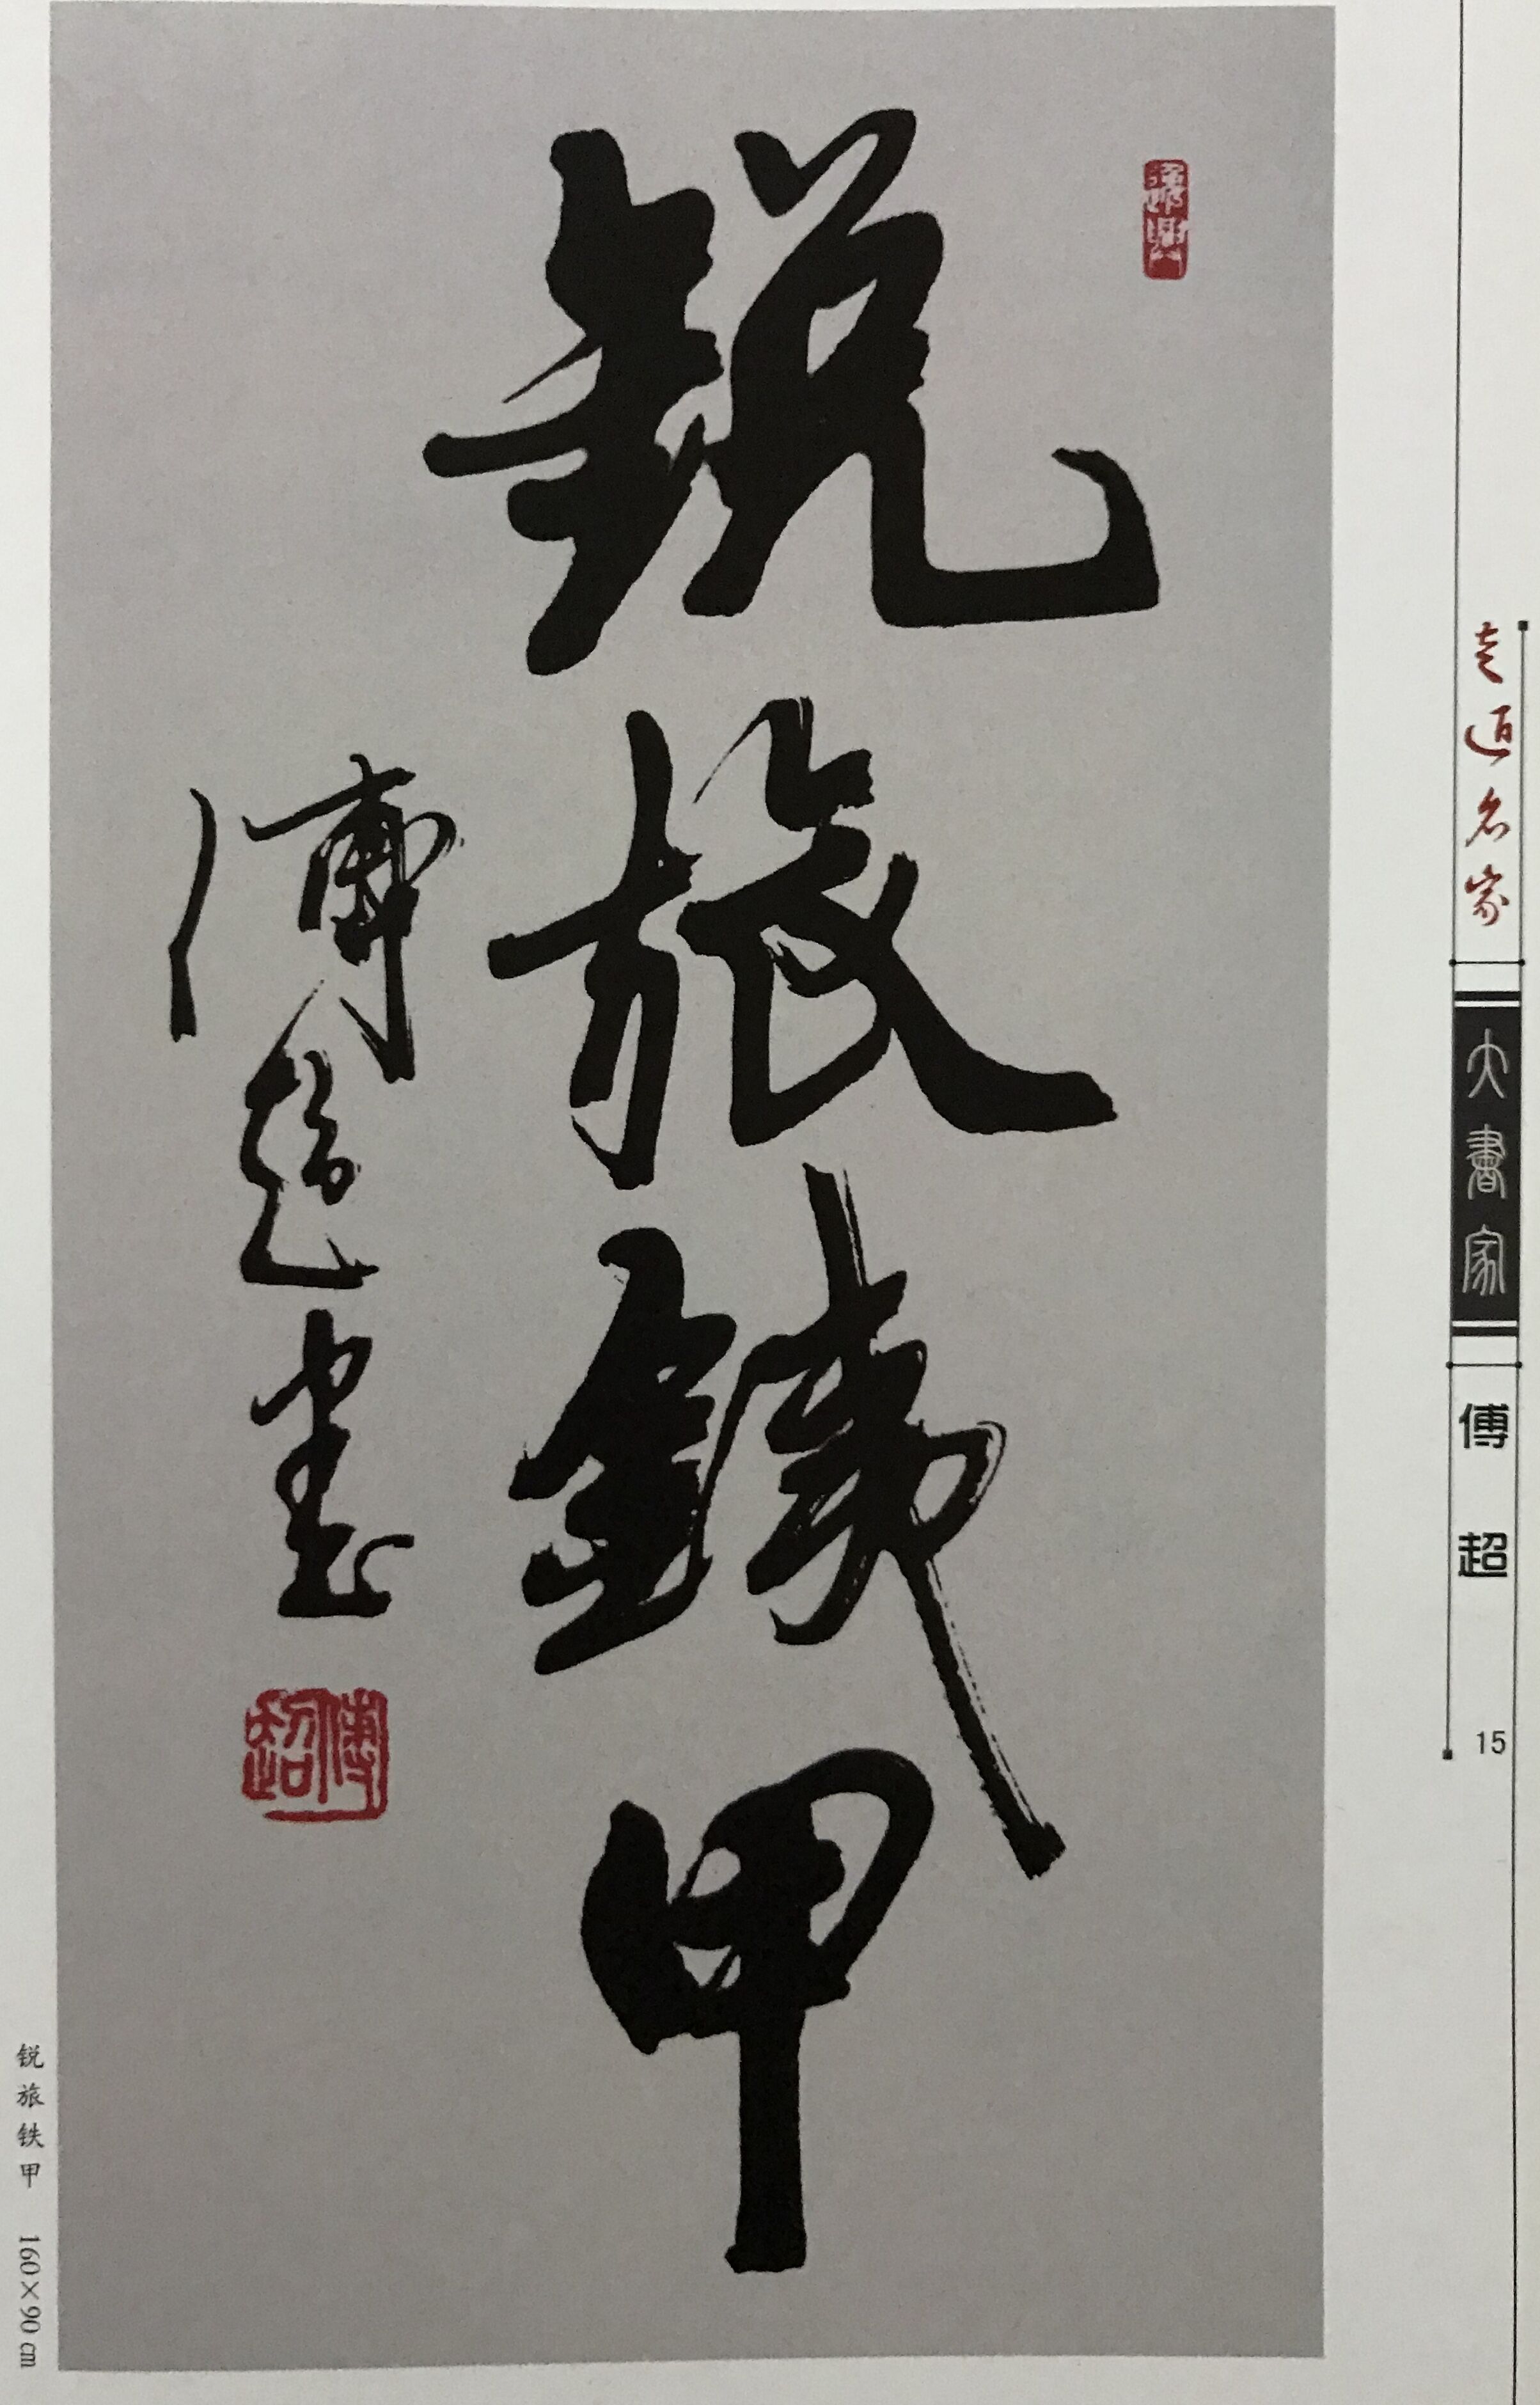 锐旅鐵甲
傅超书
傅超
走近名家
大書家
傅超
15
锐旅铁甲 160×90 cm